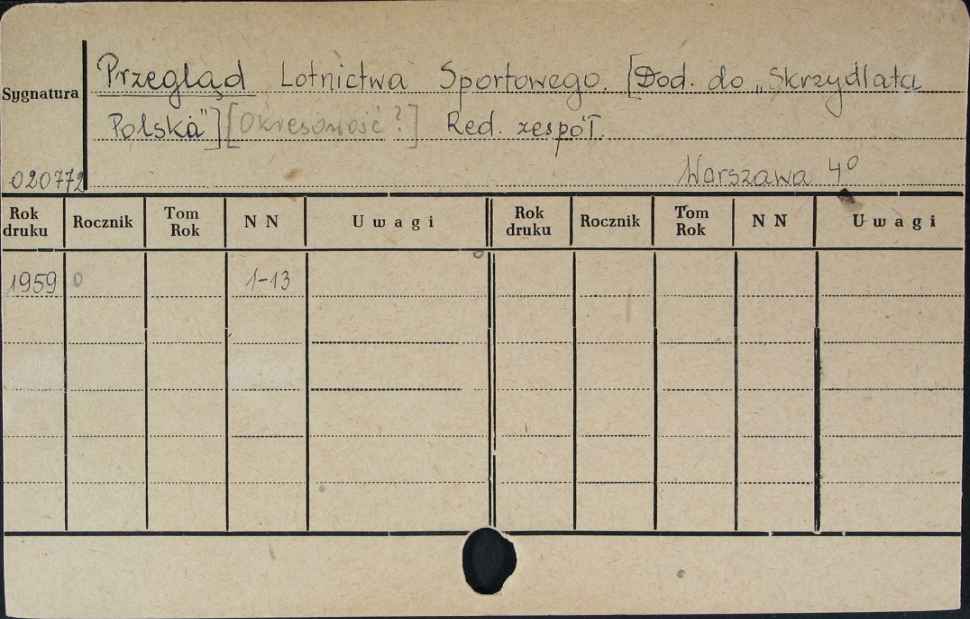 Sygnatura
Przegląd Lotnictwa Sportowego. [Dod. do „Skrzydlata
Polska"] [Okresowość?] Red. zespół.
020772
Warszawa 4º
Rok druku Rocznik Tom Rok N N Uwagi Rok druku Rocznik Tom Rok N N Uwagi
1959 0 1-13